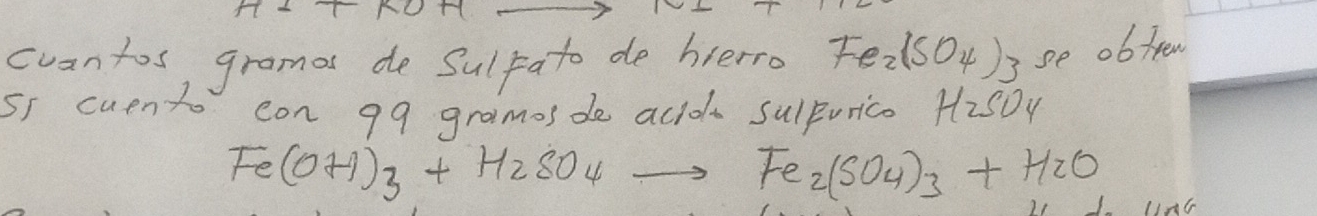 HI + KOH → KI + H2O
Cuantos gramos de Sulfato de hierro Fe2(SO4)3 se obtien
si cuento con 99 gramos de acido sulfurico H2SO4
Fe(OH)3 + H2SO4 → Fe2(SO4)3 + H2O